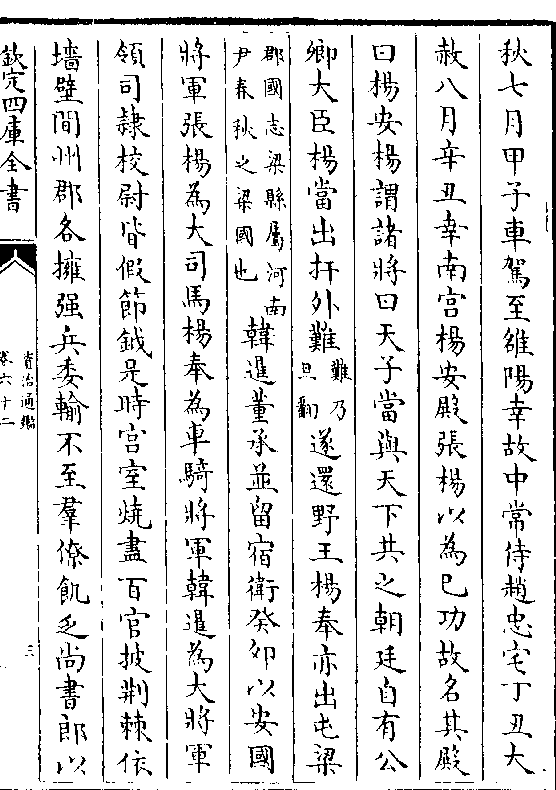 秋七月甲子車駕至雒陽幸故中常侍趙忠宅丁丑大
赦八月辛丑幸南宫楊安殿張楊以為己功故名其殿
曰楊安楊謂諸將曰天子當與天下共之朝廷自有公
卿大臣楊當出扞外難難乃旦翻遂還野王楊奉亦出屯梁
郡國志梁縣屬河南尹春秋之梁國也韓暹董承並留宿衛癸卯以安國
將軍張楊為大司馬楊奉為車騎將軍韓暹為大將軍
領司隷校尉皆假節鉞是時宫室燒盡百官披荆棘依
墻壁間州郡各擁强兵委輸不至羣僚飢乏尚書郎以
欽定四庫全書
資治通鑑
卷六十二
三